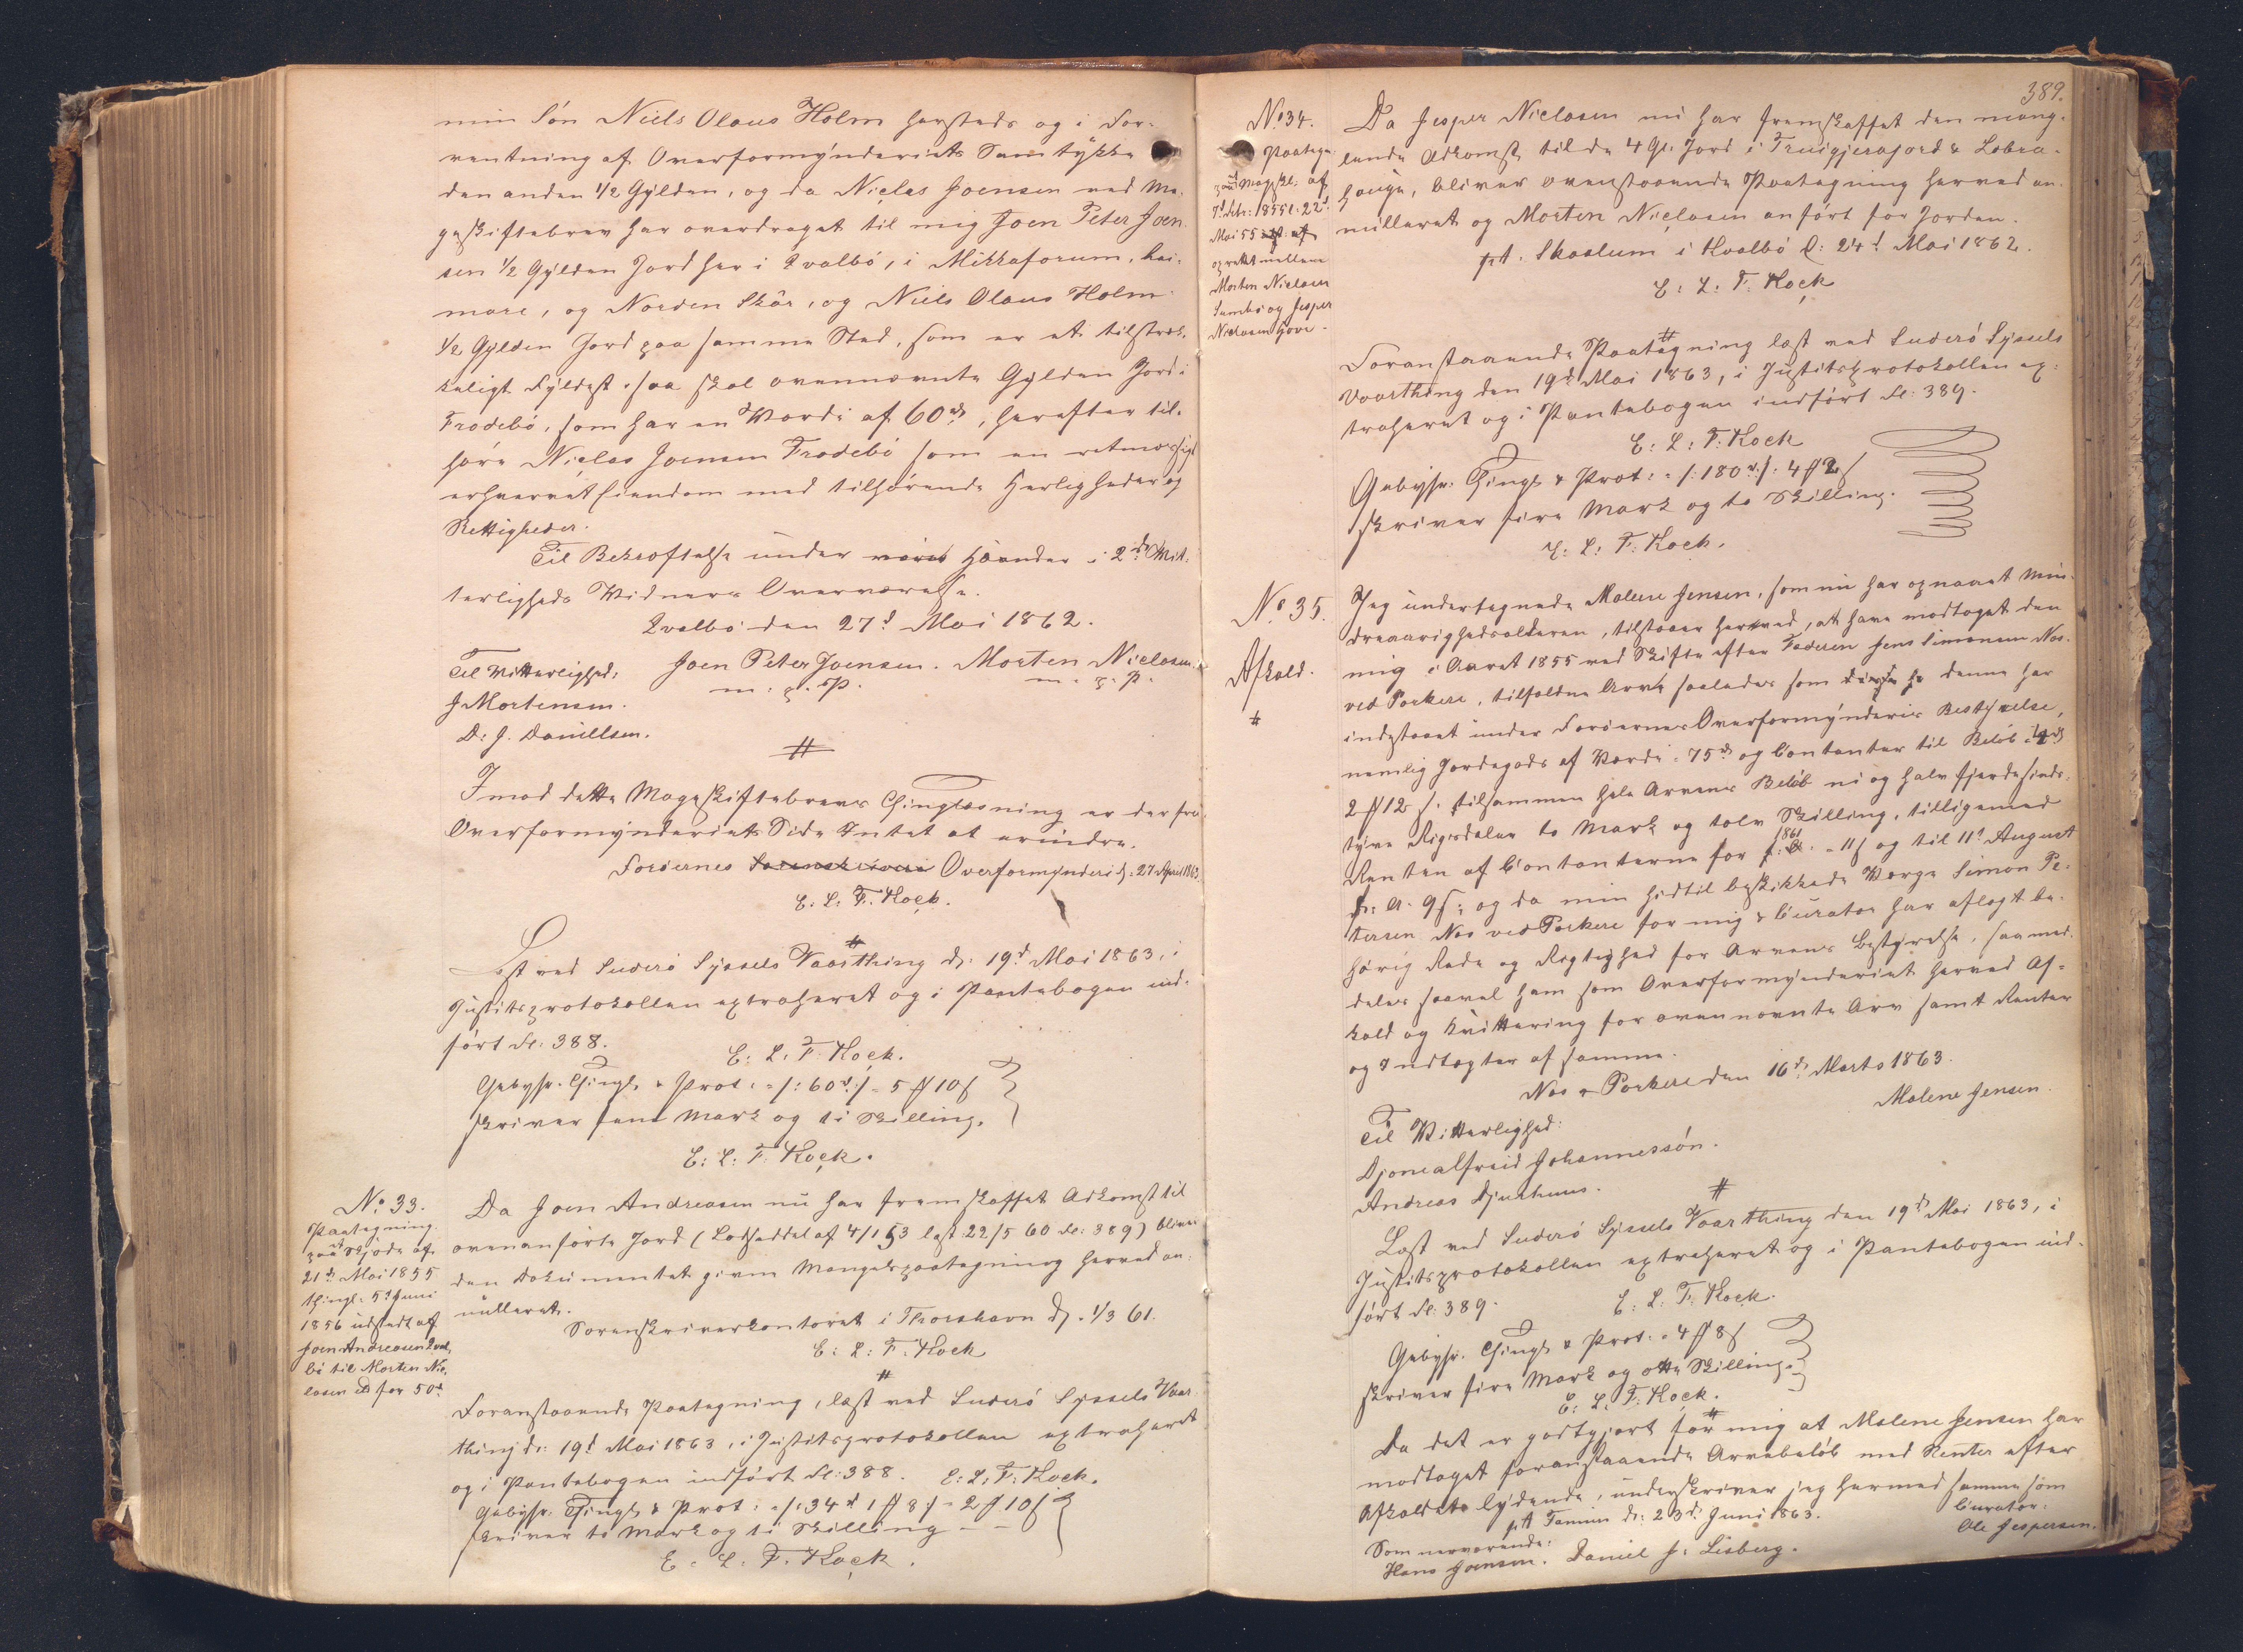 min Sön Niels Olaus Holm hersteds og i For-
ventning af Overformynderiets Samtykke
den anden 1/2 Gylden, og da Niclas Joensen ved Ma-
geskiftebrev har overdraget til mig Joen Peter Joen-
sen 1/2 Gylden Jord her i Qvalbö, i Mikkaforum, hei-
mare, og Norden Skár, og Niels Olaus Holm
1/2 Gylden Jord paa samme Sted, som er et tilstræk-
keligt Fyldest, saa skal ovennævnte Gylden Jord i
Frodebö, som har en Værdi af 60 rd, herefter til-
höre Niclas Joensen Frodebö som en retmæssigt
erhvervet Eiendom med tilhörende Herligheder og
Rettigheder.
Til Bekræftelse under vores Hænder i 2de Vit-
terligheds Vidners Overværelse.
Qvalbö den 27d Mai 1862.
Til Vitterlighed: Joen Peter Joensen. Morten Niclasen.
m. p. P. m. p. P.
J Mortensen.
D. J. Daniellsen.
Imod dette Mageskiftebrevs Thinglæsning er der fra
Overformynderiets Side Intet at erindre.
Foröernes Sorenskriveri Overformynderi d: 27 April 1863.
E: L: F. Kock.
Læst ved Suderö Syssels Vaarthing d: 19d Mai 1863, i
Justitsprotokollen extraheret og i Pantebogen ind-
fört Fl: 388.
E: L. F. Kock.
Gebyhr. Thingl. & Prot: /: 60 rd :/ 5 # 10 s
skriver fem Mark og ti Skilling.
E: L: F. Kock.
No 33.
Paategning
paa Skjöde af
21d Mai 1855
thingl: 5d Juni
1856 udstedt af
Joen Andreasen Qval-
bö til Morten Nic-
lasen for 50 rd
Da Joen Andreasen nu har fremskaffet Adkomst til
ovenanförte Jord (Lodseddel af 4/1 53 læst 22/5 60 Fl: 389) bliver
den Dokumentet givne Mangelspaategning herved an-
nulleret.
Sorenskriverkontoret i Thorshavn d. 1/3 61.
E: L: F. Kock
Foranstaaende Paategning, læst ved Suderö Syssels Vaar-
thing d: 19d Mai 1863, i Justitsprotokollen extraheret
og i Pantebogen indfört Fl: 388. E: L: F: Kock.
Gebyhr. Thingl. & Prot: /: 34 rd 1 # 8 :/ 2 # 10 s
skriver to Mark og ti Skilling
E. L. F. Kock.
389.
No 34.
Paategn.
paa Magskl. af
Febr: 1855 l: 22d
Mai 55
oprettet mellem
Morten Niclasen
Sumbö og Jesper
Niclasen Hove.
Da Jesper Niclasen nu har fremskaffet den mang-
lende Adkomst til de 4 Gl. Jord i Truigjerajord & Lobra-
houge, bliver ovenstaaende Paategning herved an-
nulleret og Morten Niclasen anfört for Jorden.
p.t. Skaalum i Hvalbö d: 24d Mai 1862.
E: L: F. Kock
Foranstaaende Paategning læst ved Suderö Syssels
Vaarthing den 19d Mai 1863, i Justitsprotokollen ex-
traheret og i Pantebogen indfört Fl: 389.
E: L: F. Kock
Gebyhr. Thingl. & Prot: /: 180 rd :/ 4 # 2 s
skriver fire Mark og to Skilling.
E: L: F: Kock.
No 35.
Afkald.
Jeg undertegnede Malene Jensen, som nu har opnaaet Min-
dreaarighedsalderen, tilstaaer herved, at have modtaget den
mig i Aaret 1855 ved Skifte efter Faderen Jens Simonsen Nes
ved Porkere, tilfaldne Arv saaledes som denne har
indestaaet under Foröernes Overformynderis Bestyrelse,
nemlig Jordegods af Værdi 75 rd og Contanter til Belöb 4 rd
2 # 12 s, tilsammen hele Arvens Belöb ni og halv fjerdesinds-
tyve Rigsdaler to Mark og tolv Skilling, tilligemed
Renten af Contanterne for 1861 11 s og til 11d August
f: A. 9 s; og da min hidtil beskikkede Værge Simon Pe-
tersen Nes ved Porkere for mig & Curator har aflagt be-
hörig Rede og Rigtighed for Arvens Bestyrelse, saa med-
deles saavel ham som Overformynderiet herved Af-
kald og Kvittering for ovennævnte Arv samt Renter
og Indtægter af samme.
Nes v Porkere den 16d Marts 1863.
Malene Jensen.
Til Vitterlighed:
Djonealfreid Johannessön.
Andreas Djurhuus.
Læst ved Suderö Syssels Vaarthing den 19d Mai 1863, i
Justitsprotokollen extraheret og i Pantebogen ind-
fört Fl: 389.
E. L. F. Kock.
Gebyhr. Thingl. & Prot: 4 # 8 s
skriver fire Mark og otte Skilling.
E: L. F. Kock.
Da det er godtgjort for mig at Malene Jensen har
modtaget foranstaaende Arvebelöb med Renter efter
Afkaldets lydende, underskriver jeg hermed samme som
Curator.
p.t. Famien d: 23d Juni 1863.
Ole Jespersen.
Som nærværende:
Hans Joensen. Daniel J. Lisberg.